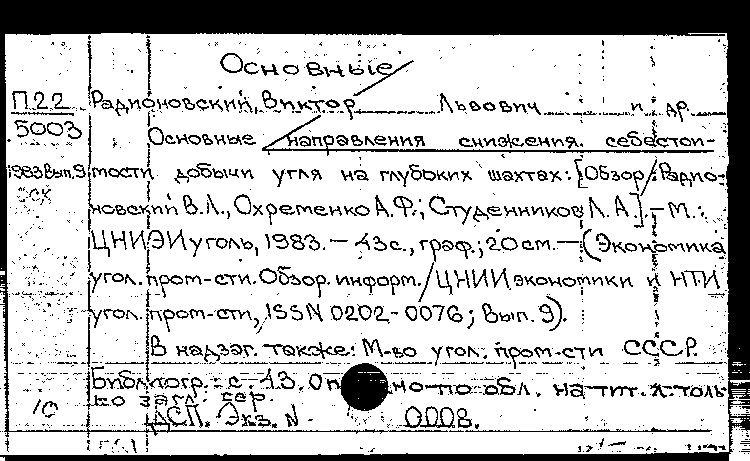 Основные
П22 Радионовский, Виктор Львович и др.
5003 Основные направления снижения себестои-
1983 Вып.9 мости добычи угля на глубоких шахтах: [Обзор / Радио-
новский В.Л., Охременко А.Ф., Студенников Л.А.]. – М.:
ЦНИЭИуголь, 1983. – 43с., граф.; 20см. – (Экономика
угол. пром-сти. Обзор. информ. / ЦНИИ экономики и НТИ
угол. пром-сти, ISSN 0202-0076; Вып. 9).
В надзаг. также: М-во угол. пром-сти СССР.
Библиогр.: с. 43. на тит. л. толь
ко загл. сер.
10 ДСП. Экз. N 0008.